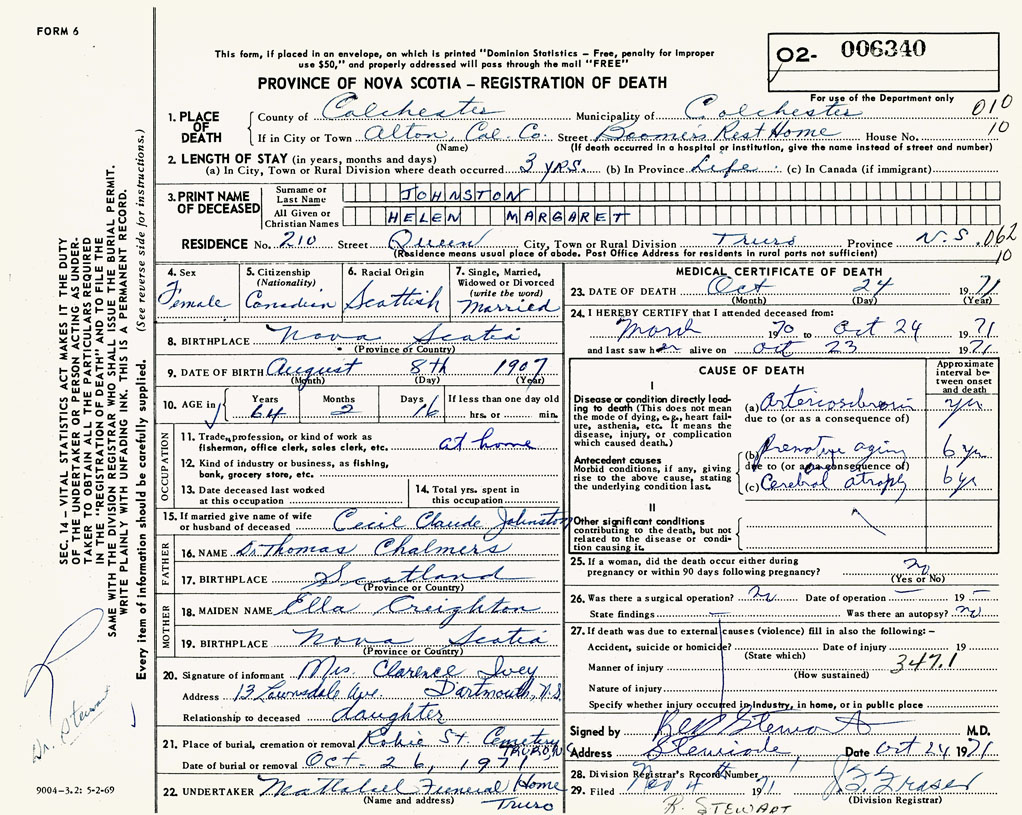 FORM 6
This form, if placed in an envelope, on which is printed "Dominion Statistics – Free, penalty for improper
use $50," and properly addressed will pass through the mail "FREE"
O2- 006340
PROVINCE OF NOVA SCOTIA – REGISTRATION OF DEATH
For use of the Department only
1. PLACE OF DEATH County of Colchester Municipality of Colchester 010
If in City or Town Alton, Col. Co. Street Boomers Rest Home House No. 10
(Name) (If death occurred in a hospital or institution, give the name instead of street and number)
2. LENGTH OF STAY (in years, months and days)
(a) In City, Town or Rural Division where death occurred 3 yrs. (b) In Province Life (c) In Canada (if immigrant)
3. PRINT NAME OF DECEASED Surname or Last Name JOHNSTON
All Given or Christian Names HELEN MARGARET
RESIDENCE No. 210 Street Queen City, Town or Rural Division Truro Province N.S. 062
(Residence means usual place of abode. Post Office Address for residents in rural parts not sufficient) 10
4. Sex Female
5. Citizenship (Nationality) Canadian
6. Racial Origin Scottish
7. Single, Married, Widowed or Divorced (write the word) Married
8. BIRTHPLACE Nova Scotia
(Province or Country)
9. DATE OF BIRTH August 8th 1907
(Month) (Day) (Year)
10. AGE in Years 64 Months 2 Days 16 If less than one day old hrs. or min.
OCCUPATION
11. Trade, profession, or kind of work as
fisherman, office clerk, sales clerk, etc. at home
12. Kind of industry or business, as fishing,
bank, grocery store, etc.
13. Date deceased last worked
at this occupation
14. Total yrs. spent in
this occupation
15. If married give name of wife
or husband of deceased Cecil Claude Johnston
FATHER
16. NAME Dr Thomas Chalmers
17. BIRTHPLACE Scotland
(Province or Country)
MOTHER
18. MAIDEN NAME Ella Creighton
19. BIRTHPLACE Nova Scotia
(Province or Country)
20. Signature of informant Mrs. Clarence Ivey
Address 13 Lawnsdale Ave. Dartmouth, N.S.
Relationship to deceased daughter
21. Place of burial, cremation or removal Robie St. Cemetery
TRURO, N.S.
Date of burial or removal Oct. 26, 1971
22. UNDERTAKER Mattatall Funeral Home
(Name and address) Truro
MEDICAL CERTIFICATE OF DEATH
23. DATE OF DEATH Oct 24 1971
(Month) (Day) (Year)
24. I HEREBY CERTIFY that I attended deceased from:
March 1970 to Oct 24 1971
and last saw her alive on Oct 23 1971
CAUSE OF DEATH
Approximate interval between onset and death
I
Disease or condition directly leading to death (This does not
mean the mode of dying, e.g., heart failure, asthenia, etc. It means the
disease, injury, or complication
which caused death.)
(a) Arteriosclerosis yrs
due to (or as a consequence of)
Antecedent causes
Morbid conditions, if any, giving
rise to the above cause, stating
the underlying condition last.
(b) aging 6 yr
due to (or as a consequence of)
(c) Cerebral atrophy 6 yr
II
Other significant conditions
contributing to the death, but not
related to the disease or condition
causing it.
25. If a woman, did the death occur either during
pregnancy or within 90 days following pregnancy? no
(Yes or No)
26. Was there a surgical operation? no Date of operation – 19 –
State findings – Was there an autopsy? no
27. If death was due to external causes (violence) fill in also the following: –
Accident, suicide or homicide? Date of injury 19
(State which)
Manner of injury 347.1
(How sustained)
Nature of injury
Specify whether injury occurred in Industry, in home, or in public place
Signed by Stewart M.D.
Address Stewiacke Date Oct 24 1971
28. Division Registrar's Record Number
29. Filed Nov 4 1971 Fraser
(Division Registrar)
R. STEWART
SEC. 14 – VITAL STATISTICS ACT MAKES IT THE DUTY
OF THE UNDERTAKER OR PERSON ACTING AS UNDER-
TAKER TO OBTAIN ALL THE PARTICULARS REQUIRED
IN THE "REGISTRATION OF DEATH" AND TO FILE THE
SAME WITH THE DIVISION REGISTRAR WHO SHALL ISSUE THE BURIAL PERMIT.
WRITE PLAINLY WITH UNFADING INK. THIS IS A PERMANENT RECORD.
Every item of information should be carefully supplied. (See reverse side for instructions.)
Dr. Stewart
9004-3.2: 5-2-69